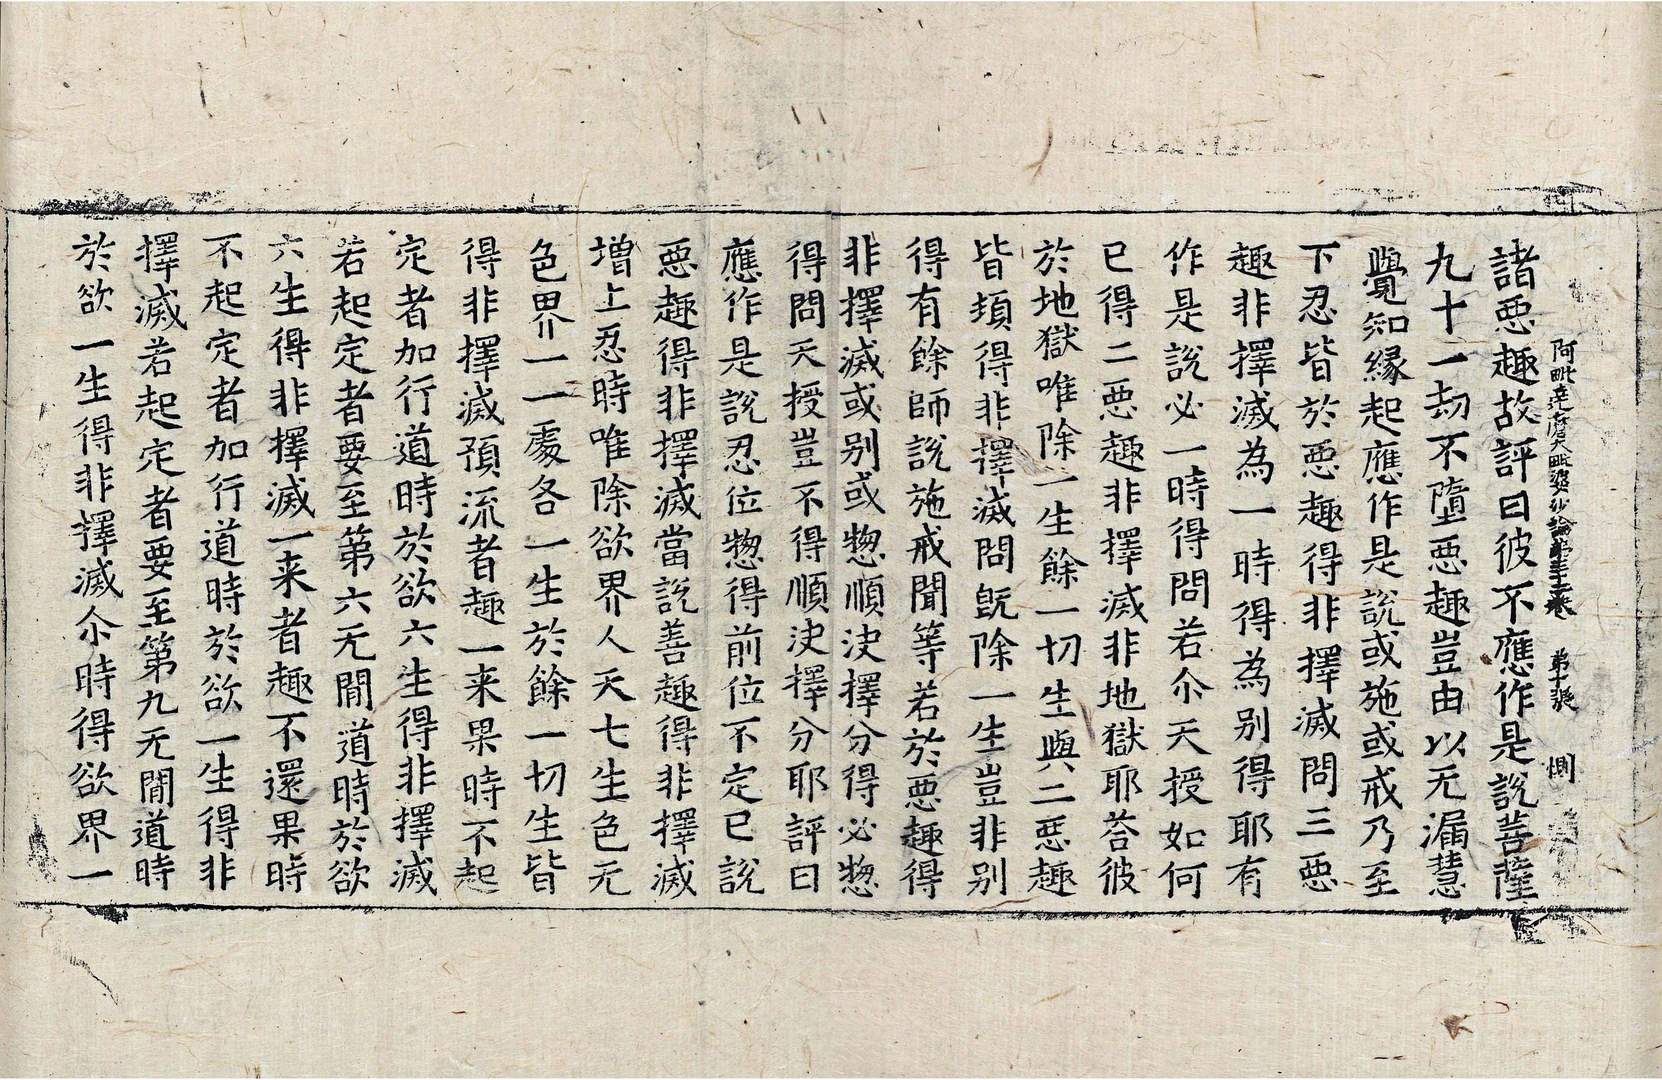 阿毗達磨大毗婆沙論第三十二卷 第十張 惻
諸惡趣故評曰彼不應作是說菩薩
九十一劫不墮惡趣豈由以无漏慧
覺知縁起應作是說或施或戒乃至
下忍皆於惡趣得非擇滅問三惡
趣非擇滅為一時得為別得耶有
作是說必一時得問若尒天授如何
已得二惡趣非擇滅非地獄耶荅彼
於地獄唯除一生餘一切生與二惡趣
皆頓得非擇滅問旣除一生豈非別
得有餘師說施戒聞等若於惡趣得
非擇滅或別或惣順決擇分得必惣
得問天授豈不得順決擇分耶評曰
應作是說忍位惣得前位不定已說
惡趣得非擇滅當說善趣得非擇滅
增上忍時唯除欲界人天七生色无
色界一一處各一生於餘一切生皆
得非擇滅預流者趣一来果時不起
定者加行道時於欲六生得非擇滅
若起定者要至第六无閒道時於欲
六生得非擇滅一来者趣不還果時
不起定者加行道時於欲一生得非
擇滅若起定者要至第九无閒道時
於欲一生得非擇滅尒時得欲界一